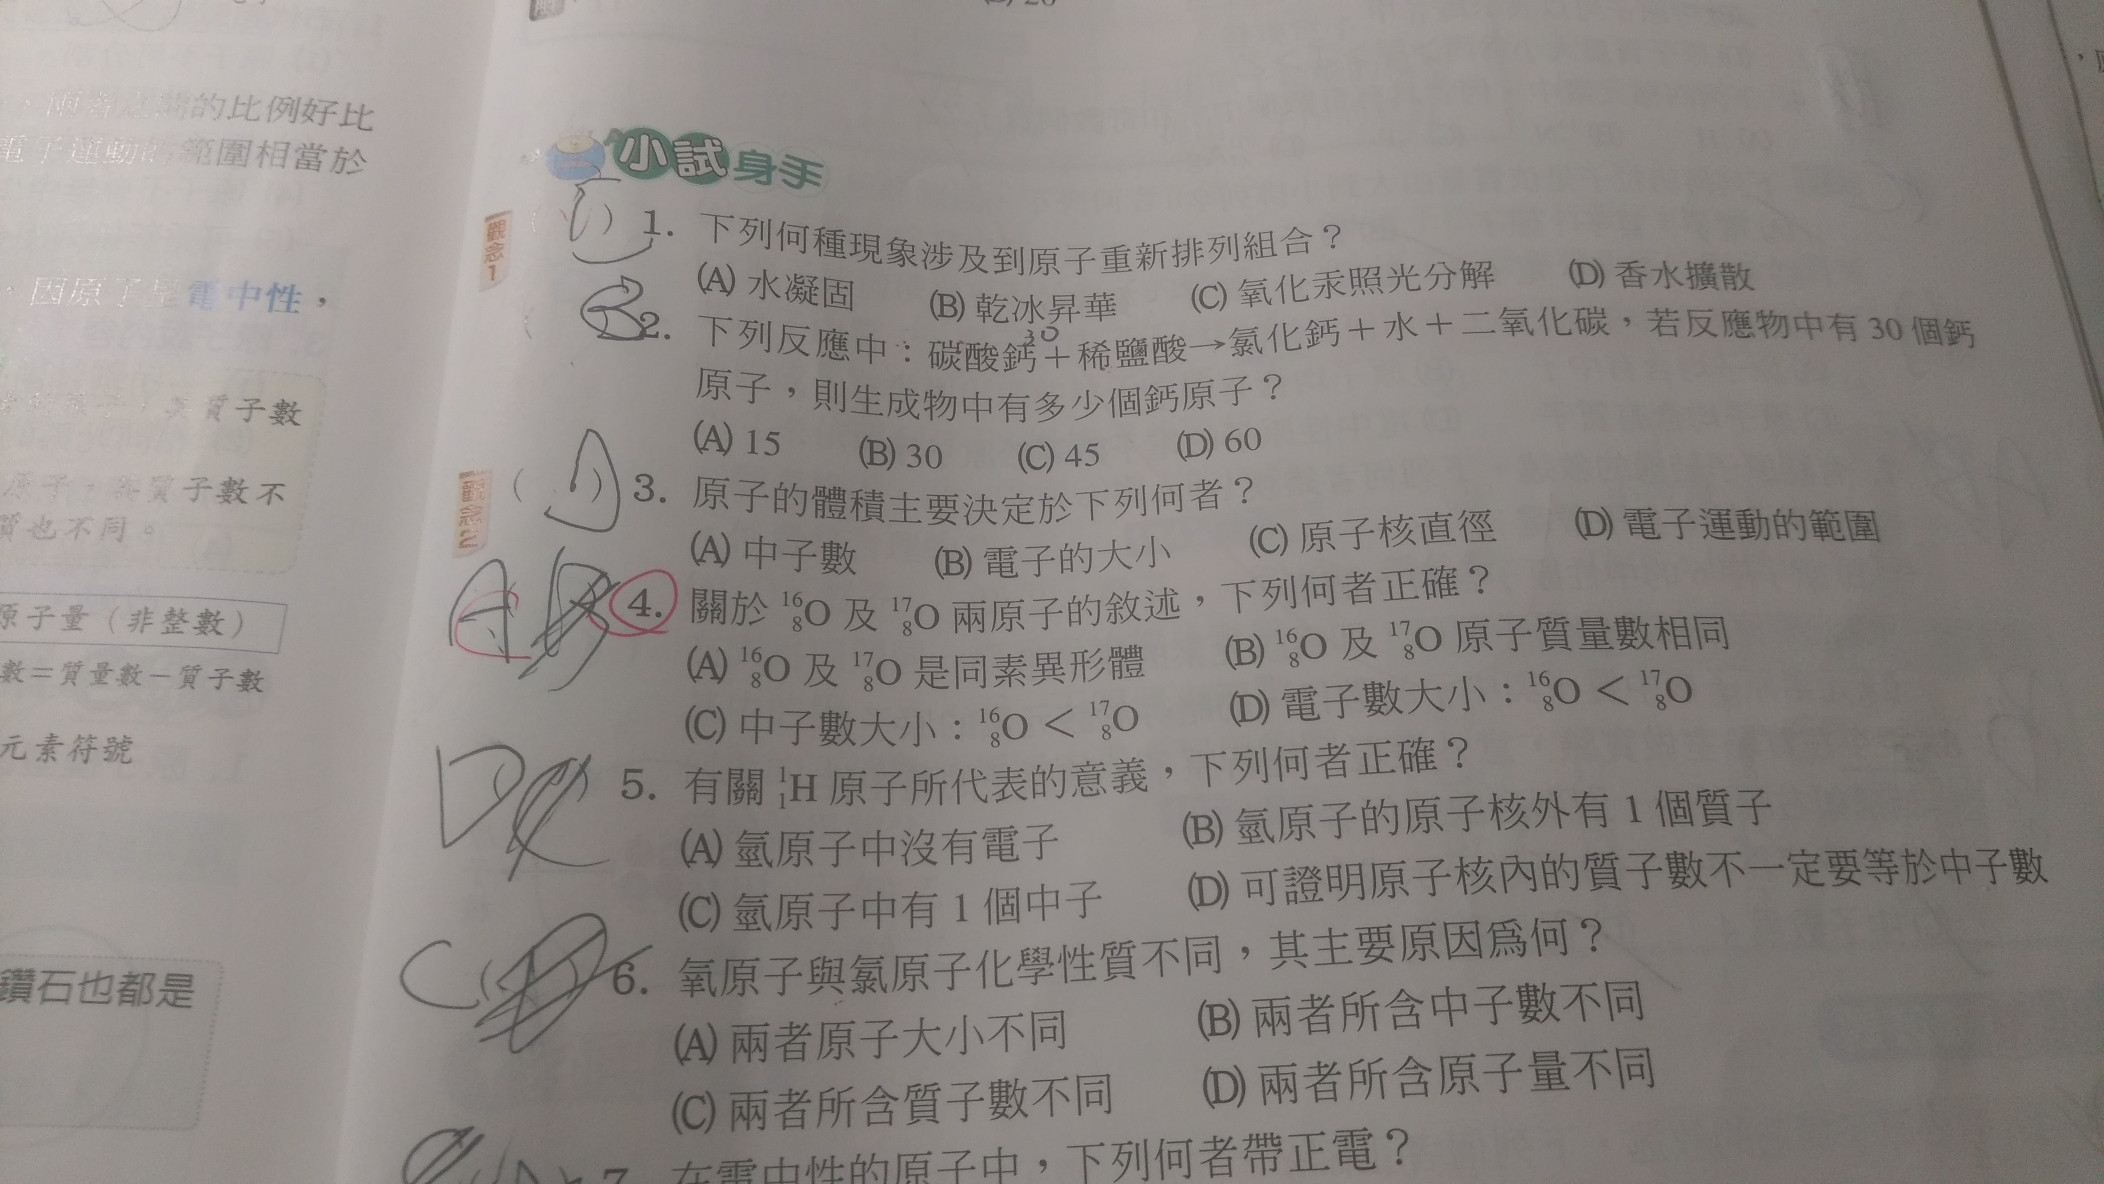 的比例好比
電子運動的範圍相當於
因原子是電中性，
其質子數
原子，其質子數不
質也不同。
原子量（非整數）
數＝質量數－質子數
元素符號
鑽石也都是
小試身手
觀念1
1. 下列何種現象涉及到原子重新排列組合？
(A) 水凝固 (B) 乾冰昇華 (C) 氧化汞照光分解 (D) 香水擴散
B 2. 下列反應中：碳酸鈣＋稀鹽酸→氯化鈣＋水＋二氧化碳，若反應物中有 30 個鈣
30
原子，則生成物中有多少個鈣原子？
(A) 15 (B) 30 (C) 45 (D) 60
觀念2
( D ) 3. 原子的體積主要決定於下列何者？
(A) 中子數 (B) 電子的大小 (C) 原子核直徑 (D) 電子運動的範圍
A 4. 關於 ¹⁶₈O 及 ¹⁷₈O 兩原子的敘述，下列何者正確？
(A) ¹⁶₈O 及 ¹⁷₈O 是同素異形體 (B) ¹⁶₈O 及 ¹⁷₈O 原子質量數相同
(C) 中子數大小：¹⁶₈O ＜ ¹⁷₈O (D) 電子數大小：¹⁶₈O ＜ ¹⁷₈O
D 5. 有關 ¹₁H 原子所代表的意義，下列何者正確？
(A) 氫原子中沒有電子 (B) 氫原子的原子核外有 1 個質子
(C) 氫原子中有 1 個中子 (D) 可證明原子核內的質子數不一定要等於中子數
C 6. 氧原子與氯原子化學性質不同，其主要原因為何？
(A) 兩者原子大小不同 (B) 兩者所含中子數不同
(C) 兩者所含質子數不同 (D) 兩者所含原子量不同
7. 在電中性的原子中，下列何者帶正電？